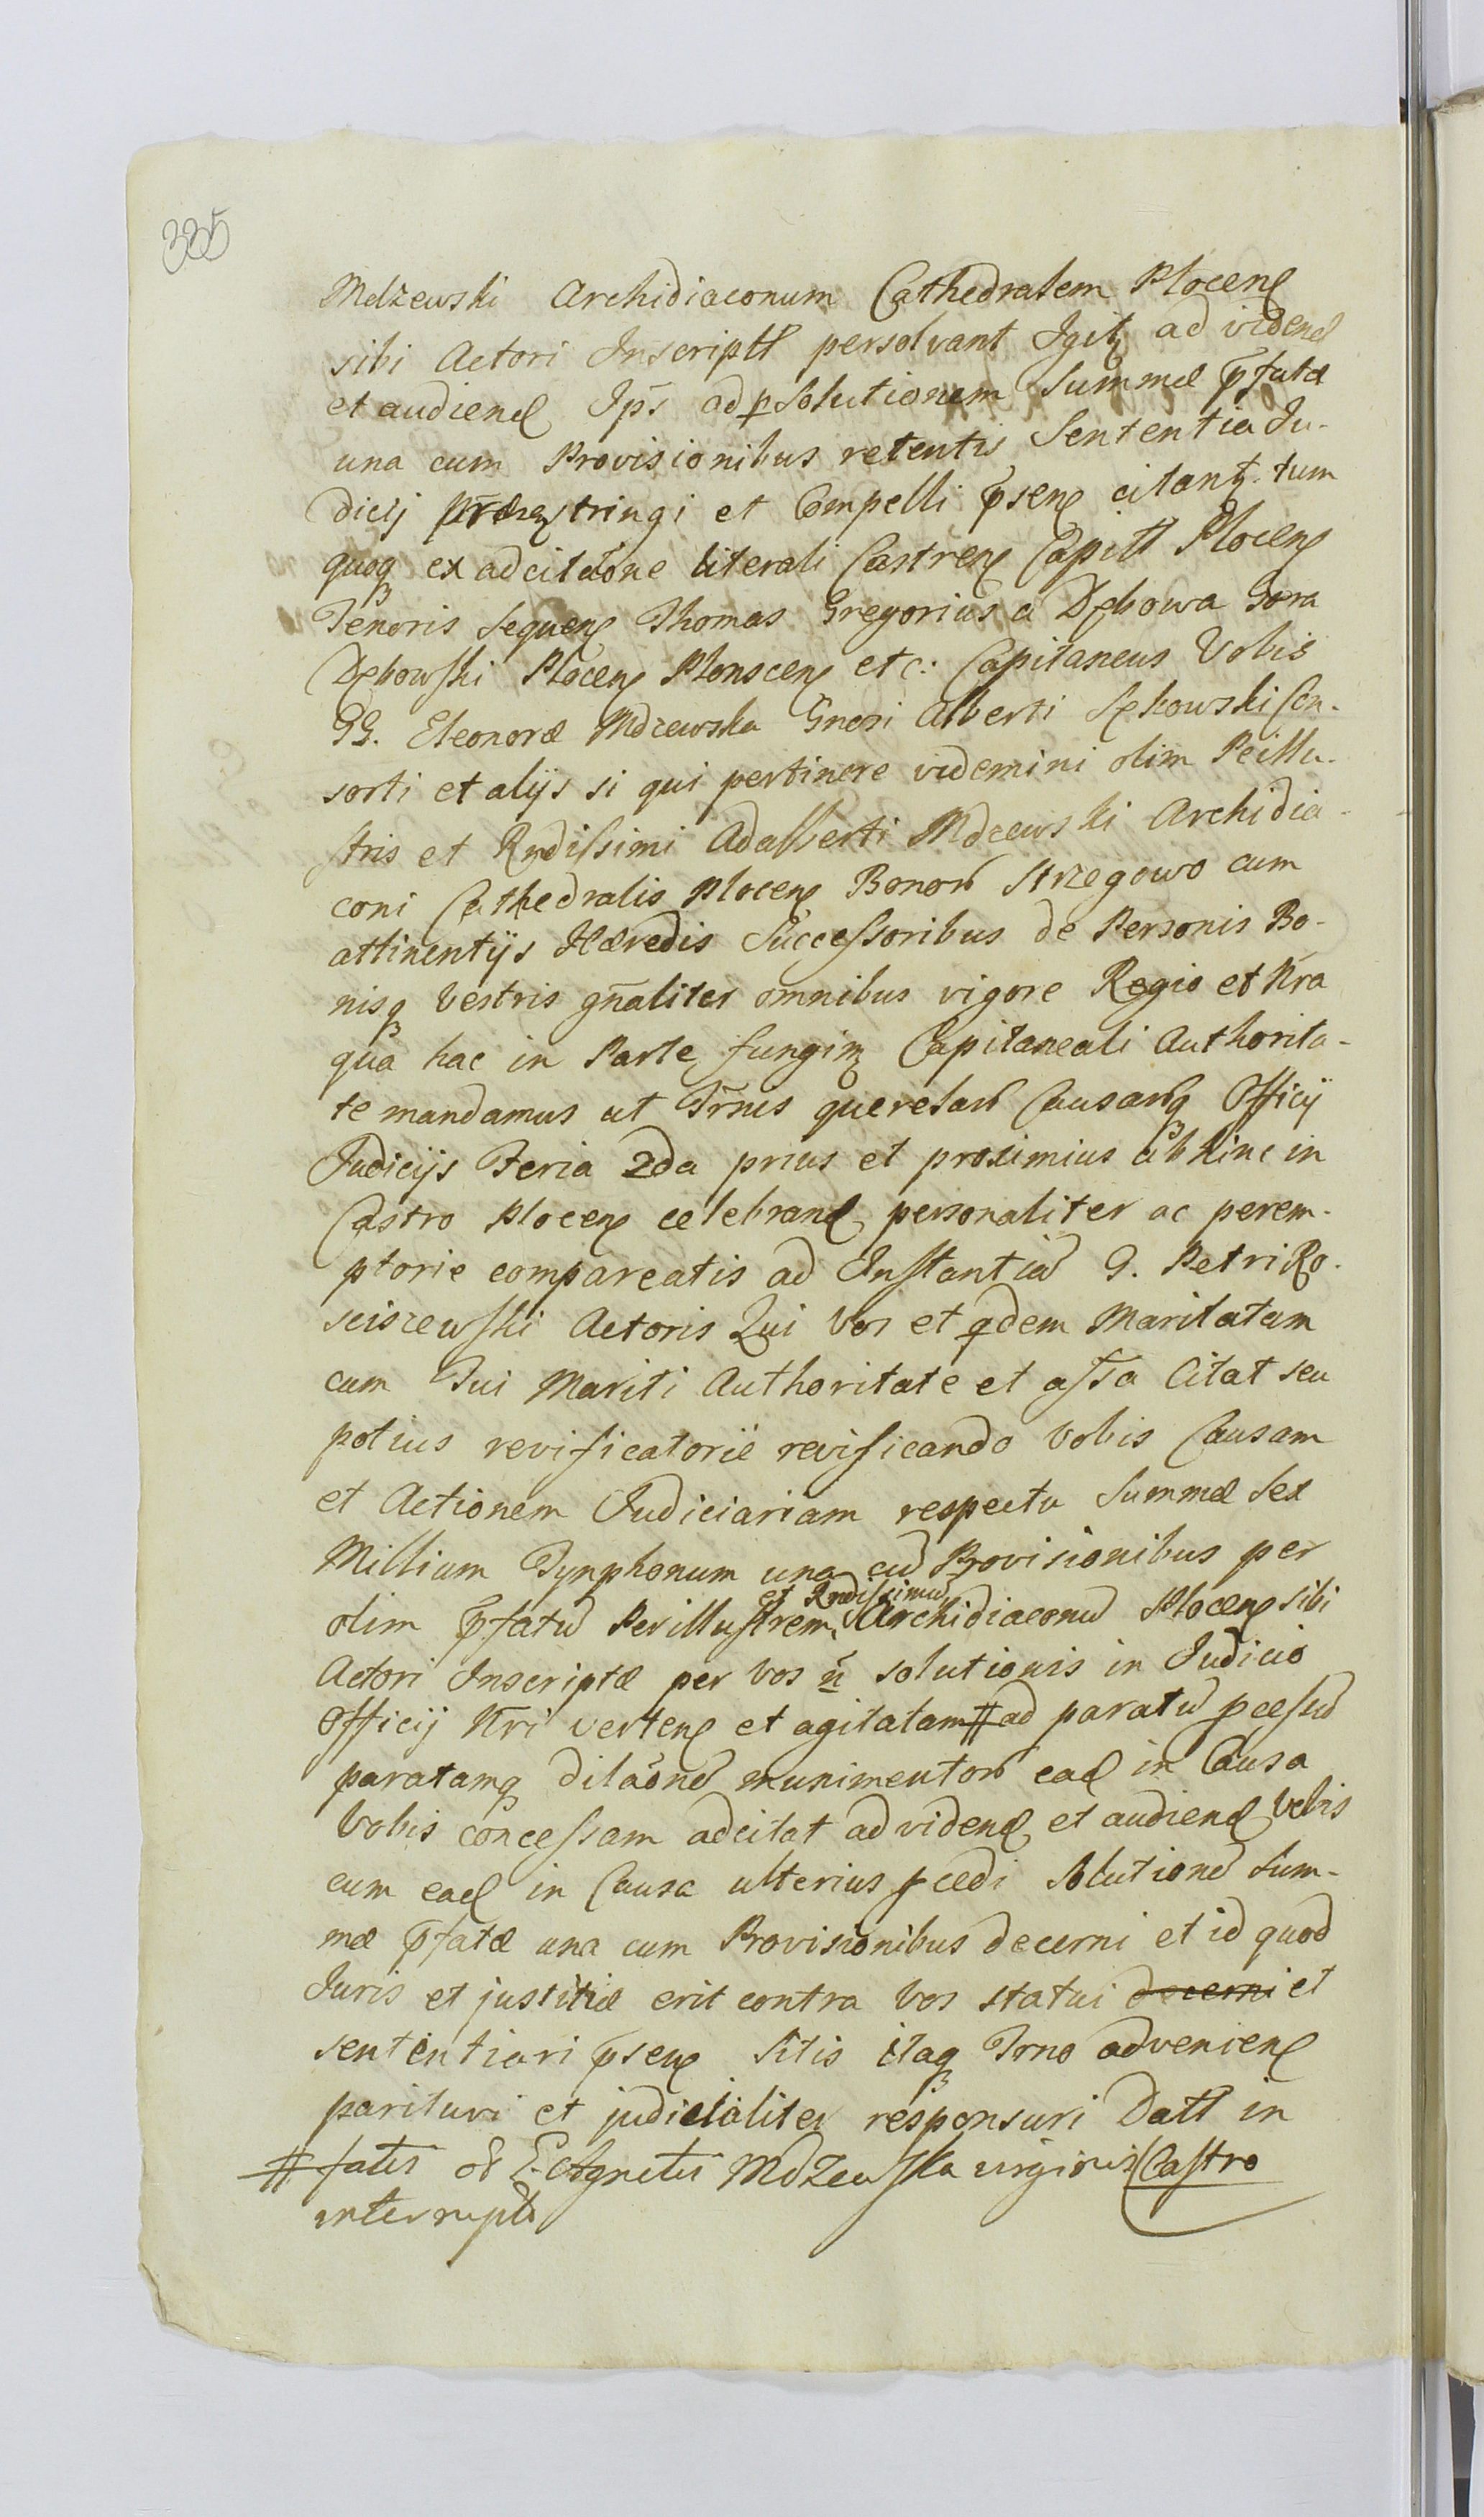 335
Mdzewski Archidiaconum Cathedralem Plocen
sibi Actori Inscriptt persolvant Igitꝫ ad videnđ
et audienđ Ips̄ ad ꝑsolutionem Summæ p̄fatæ
una cum Provisionibus retentis Sententia Ju-
dicij stringi et Compelli p̄sen citantꝫ. tum
quoqꝫ ex adcitāone literali Castren Capitt Plocen
Tenoris sequen Thomas Gregorius a Dębowa Gora
Dębowski Plocen Plonscen etc: Capitaneus Vobis
GG. Eleonoræ Mdzewska Gnosi Alberti Sękowski Con-
sorti et alijs si qui pertinere videmini olim Peillu-
stris et Rndissimi Adalberti Mdzewski Archidia-
coni Cathedralis Plocen Bonoꝝ Strzegowo cum
attinentijs Hæredis Successoribus de Personis Bo-
nisqꝫ Vestris gn̄aliter omnibus vigore Regio et Nra
qua hac in Parte fungimꝫ Capitaneali Authorita-
te mandamus ut Tr̄nis querelaꝝ Causaꝝqꝫ Officij
Judicijs Feria 2da prius et proximius abhinc in
Castro Plocen celebranđ personaliter ac perem-
ptorie compareatis ad Instantiā G. Petri Ro-
sciszewski Actoris Qui Vos et qdem Maritatam
cum Tui Mariti Authoritate et assa Citat seu
potius revificatorie revificando Vobis Causam
et Actionem Judiciariam respectu Summæ Sex
Millium Tynphonum una cū Provisionibus per
olim p̄fatū Perillustrem et Rndissimū Archidiaconū Plocen sibi
Actori Inscriptæ per Vos n̄ solutionis in Judicio
Officij Nri verten et agitatam # ad paratū ꝓcessū
paratamqꝫ dilāonē munimentoꝝ eađ in Causa
Vobis concessam adcitat ad videnđ et audienđ Vobis
cum eađ in Causa ulterius ꝓcedi Solutionē Sum-
mæ p̄fatæ una cum Provisionibus decerni et id quod
Juris et justitiæ erit contra Vos statui decerni et
sententiari p̄sen Sitis itaqꝫ Trno advenien
parituri et judicialiter responsuri Datt in
# fatis Agnetis Mdzewska virginis Castro
interrupta